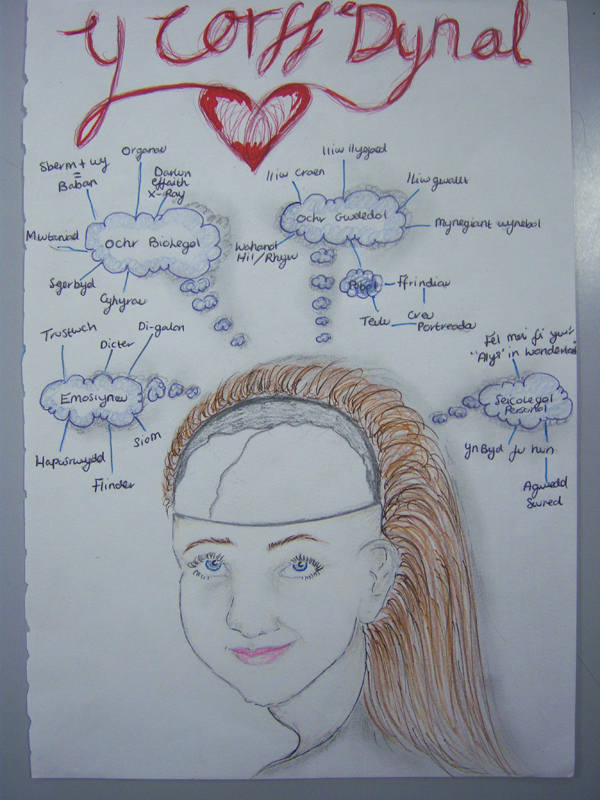 Y Corff Dynol
Sberm + wy
=
Baban
Organau
Darlun
effaith
X-Ray
Ochr Biolegol
Mwtaniad
Sgerbyd
Cyhyrau
lliw croen
lliw llygaid
lliw gwallt
Ochr Gweledol
Mynegiant wynebol
Wahanol
Hil/Rhyw
Pobol
Ffrindiau
Teulu
Creu
Portreada
Tristwch
Dicter
Di-galon
Emosiynau
Hapusrwydd
Flinder
Siom
Fel mai fi yw'r
"Alys" in Wonderland
Seicolegol
Personol
Yn Byd fy hun
Agwedd
Swreal